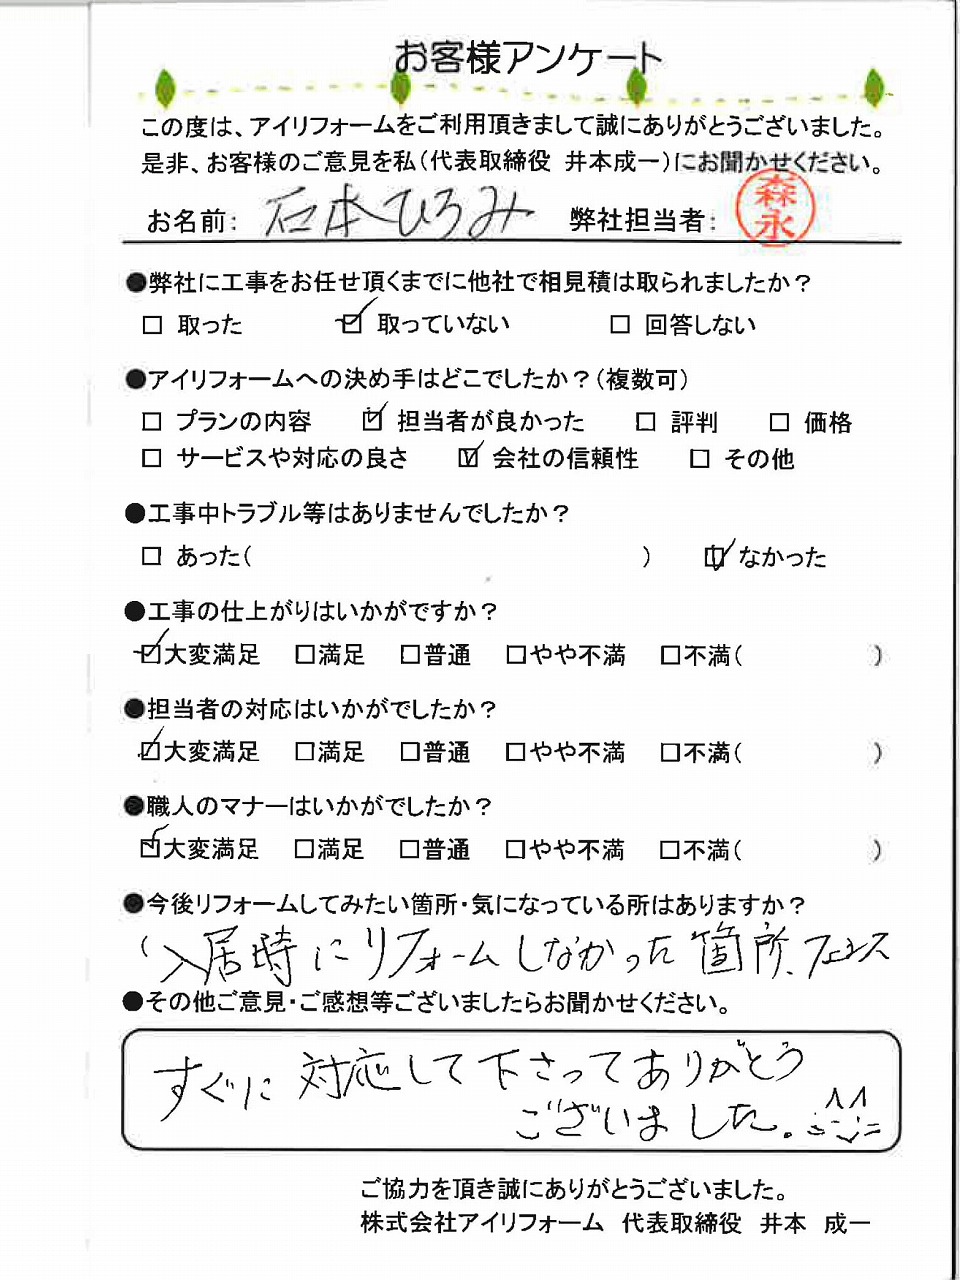 お客様アンケート
この度は、アイリフォームをご利用頂きまして誠にありがとうございました。
是非、お客様のご意見を私(代表取締役 井本成一)にお聞かせください。
お名前: 石本ひろみ 弊社担当者: 森永
●弊社に工事をお任せ頂くまでに他社で相見積は取られましたか？
□ 取った ☑ 取っていない □ 回答しない
●アイリフォームへの決め手はどこでしたか？(複数可)
□ プランの内容 ☑ 担当者が良かった □ 評判 □ 価格
□ サービスや対応の良さ ☑ 会社の信頼性 □ その他
●工事中トラブル等はありませんでしたか？
□ あった( ) ☑ なかった
●工事の仕上がりはいかがですか？
☑大変満足 □満足 □普通 □やや不満 □不満( )
●担当者の対応はいかがでしたか？
☑大変満足 □満足 □普通 □やや不満 □不満( )
●職人のマナーはいかがでしたか？
☑大変満足 □満足 □普通 □やや不満 □不満( )
●今後リフォームしてみたい箇所・気になっている所はありますか？
入居時にリフォームしなかった箇所、フェンス
●その他ご意見・ご感想等ございましたらお聞かせください。
すぐに対応して下さってありがとう
ございました。
ご協力を頂き誠にありがとうございました。
株式会社アイリフォーム 代表取締役 井本 成一